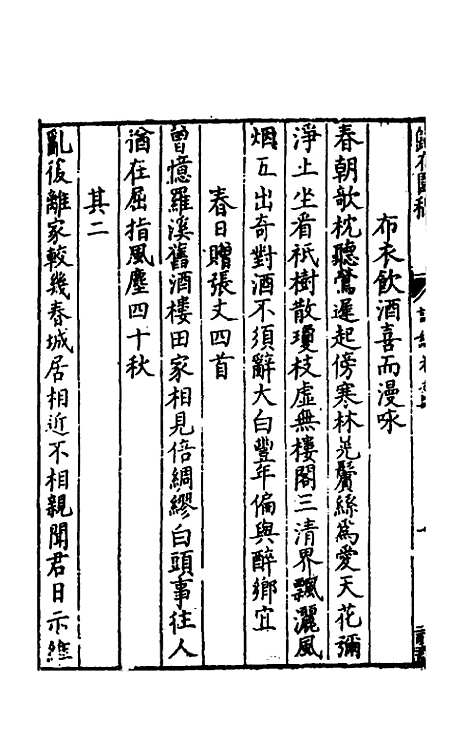 布禾飲酒喜而漫咏
春朝欹枕聽鶯遲起傍寒林晃鬢絲爲愛天花彌
淨土坐看祇樹散瓊枝虛無樓閣三清界飄灑風
烟五出奇對酒不須辭大白豐年偏與醉鄉宜
春日贈張丈四首
曾憶羅溪舊酒樓田家相見倍綢繆白頭事往人
猶在屈指風塵四十秋
其二
亂後離家較幾春城居相近不相親聞君日示維